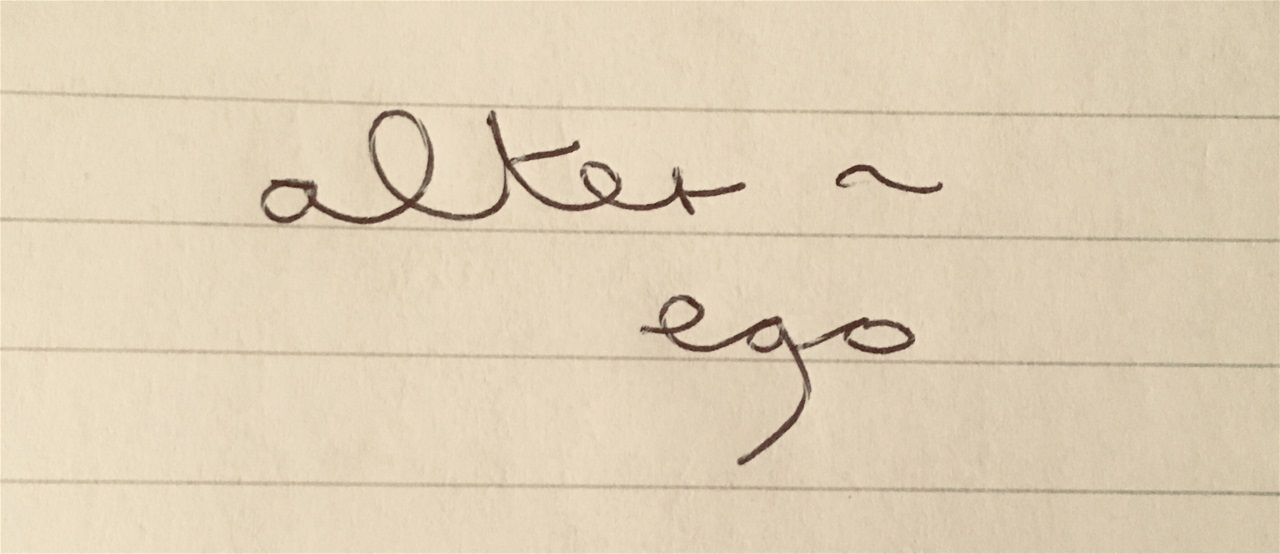 alter ~
ego